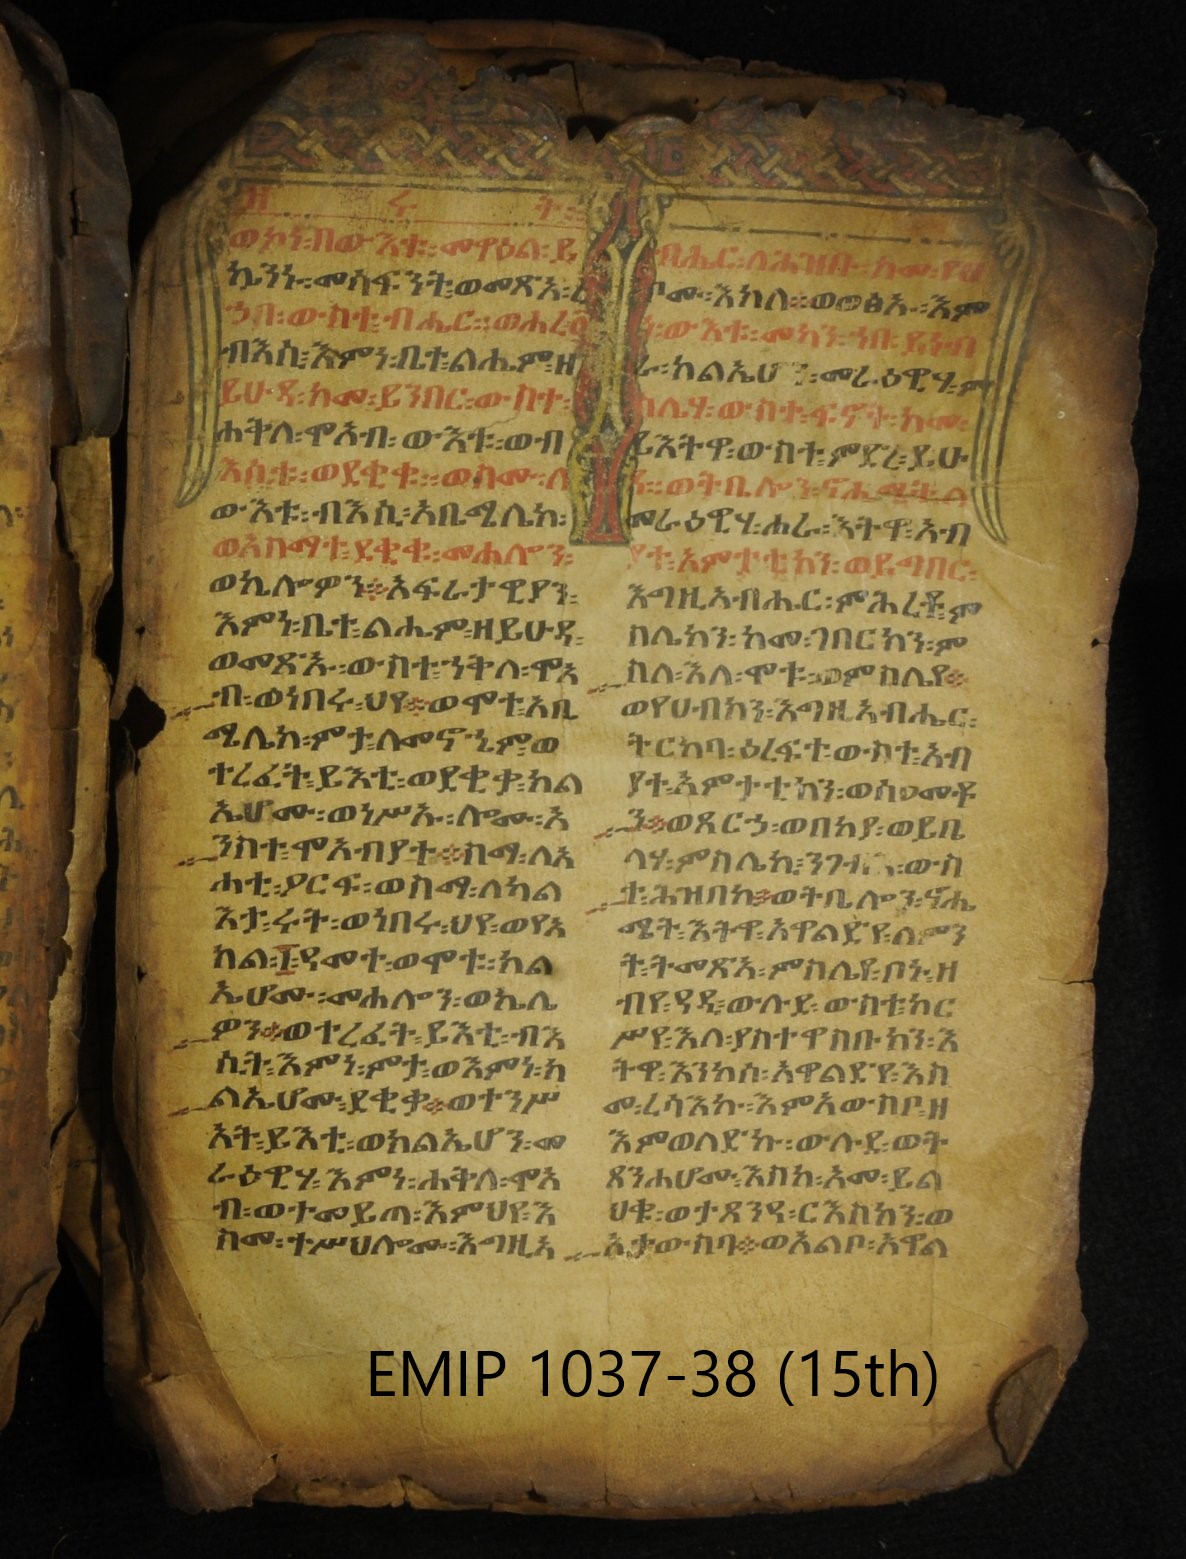 ዘ ሩ ት።
ወኮነ፡በውእቱ፡መዋዕል፡ይ
ኴንኑ፡መሳፍንት፡ወመጽአ፡ረ
ኃበ፡ውስተ፡ብሔር፡ወሐረ፩
ብእሲ፡እምነ፡ቤተ፡ልሔም፡ዘ
ይሁዳ፡ከመ፡ይንበር፡ውስተ፡
ሐቅለ፡ሞአብ፡ውእቱ፡ወብ
እሲቱ፡ወደቂቁ፡፡ወስሙ፡ለ
ውእቱ፡ብእሲ፡አቤሜሌክ፡
ወአስማተ፡ደቂቁ፡መሐሎን፡
ወኬሎዎን፨ኤፍራታዊያን፡
እምነ፡ቤተ፡ልሔም፡ዘይሁዳ፡
ወመጽኡ፡ውስተ፡ንቅለ፡ሞአ
ብ፡ወነበሩ፡ህየ፨ወሞተ፡አቤ
ሜሌክ፡ምታ፡ለመኖኒም፡ወ
ተረፈት፡ይእቲ፡ወደቂቃ፡ክል
ኤሆሙ፡ወነሥኡ፡ሎሙ፡አ
ንስተ፡ሞአብያተ፨ስማ፡ለአ
ሐቲ፡ዖርፍ፡ወስማ፡ለካል
እታ፡ሩት፡ወነበሩ፡ህየ፡ወየአ
ክል፡፲፡ዓመተ፡ወሞቱ፡ክል
ኤሆሙ፡መሐሎን፡ወኬሌ
ዎን፨ወተረፈት፡ይእቲ፡ብእ
ሲት፡እምነ፡ምታ፡ወእምነ፡ክ
ልኤሆሙ፡ደቂቃ፨ወተንሥ
አት፡ይእቲ፡ወክልኤሆን፡መ
ራዕዊሃ፡እምነ፡ሐቅለ፡ሞአ
ብ፡ወተመይጠ፡እምህየ፡እ
ስመ፡ተሥህሎሙ፡እግዚአ
ብሔር፡ለሕዝቡ፡ከመ፡የሀ
ቦሙ፡እክለ፨ወወፅአ፡እም
ውእቱ፡መካን፡ኀበ፡ይነብ
ራ፡ክልኤሆን፡መራዕዊሃ፡ም
ስሌሃ፡ውስተ፡ፍኖት፡ከመ፡
ይእትዋ፡ውስተ፡ምድረ፡ይሁ
ዳ፡፡ወትቤሎን፡ኖሐሚት፡ል
መራዕዊሃ፡ሐራ፡እትዋ፡አብ
ያተ፡እምታቲክን፡ወይግበር፡
እግዚአብሔር፡ምሕረቶ፡ም
ስሌክን፡ከመ፡ገበርክን፡ም
ስለ፡እለ፡ሞቱ፡ወምስሌየ፨
ወየሀብክን፡እግዚአብሔር፡
ትርከባ፡ዕረፍተ፡ውስተ፡አብ
ያተ፡እምታቲክን፡ወሰዐመቶ
ን፨ወጸርኃ፡ወበከያ፡ወይቤ
ላሃ፡ምስሌኪ፡ንገብእ፡ውስ
ተ፡ሕዝብኪ፨ወትቤሎን፡ኖሐ
ሜት፡እትዋ፡አዋልድየ፡ለምን
ት፡ትመጽእ፡ምስሌየ፡ቦኑ፡ዘ
ብየ፡ዓዲ፡ውሉደ፡ውስተ፡ከር
ሥየ፡እለ፡ያስተዋስቡክን፡እ
ትዋ፡እንከሰ፡አዋልድየ፡እስ
መ፡ረሳእኩ፡እምአውስቦ፡ዘ
እምወለድኩ፡ውሉደ፡ወት
ጸንሐሆሙ፡እስከ፡አመ፡ይል
ህቁ፡ወታጸንዓ፡ርእስክን፡ወ
ኢታውስባ፨ወአልቦ፡አዋል
EMIP 1037-38 (15th)